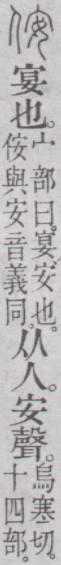 侒宴也。宀部曰。宴、安也。侒與安音義同。从人。安聲。烏寒切。十四部。